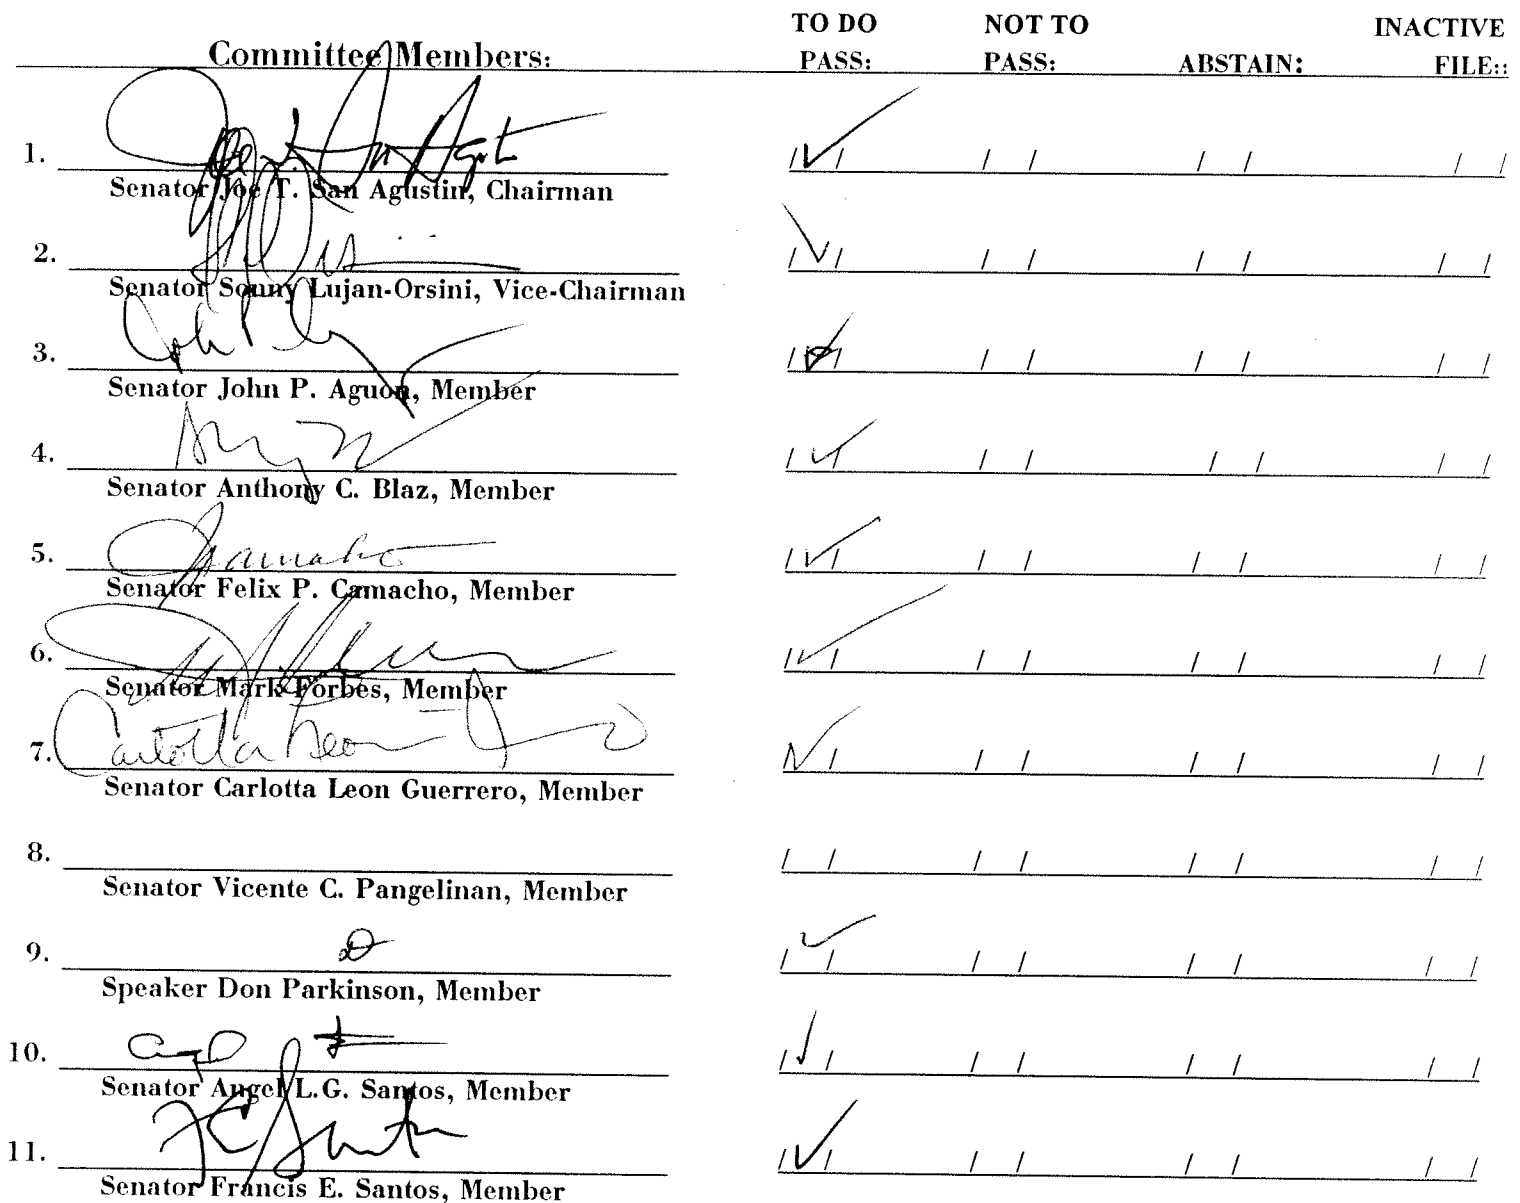 TO DO NOT TO INACTIVE
Committee Members: PASS: PASS: ABSTAIN: FILE::
1. / ✓ / / / / / / /
Senator Joe T. San Agustin, Chairman
2. / ✓ / / / / / / /
Senator Sonny Lujan-Orsini, Vice-Chairman
3. / ✓ / / / / / / /
Senator John P. Aguon, Member
4. / ✓ / / / / / / /
Senator Anthony C. Blaz, Member
5. Camacho / ✓ / / / / / / /
Senator Felix P. Camacho, Member
6. / ✓ / / / / / / /
Senator Mark Forbes, Member
7. Carlotta Leon / ✓ / / / / / / /
Senator Carlotta Leon Guerrero, Member
8. / / / / / / / /
Senator Vicente C. Pangelinan, Member
9. / ✓ / / / / / / /
Speaker Don Parkinson, Member
10. / ✓ / / / / / / /
Senator Angel L.G. Santos, Member
11. / ✓ / / / / / / /
Senator Francis E. Santos, Member